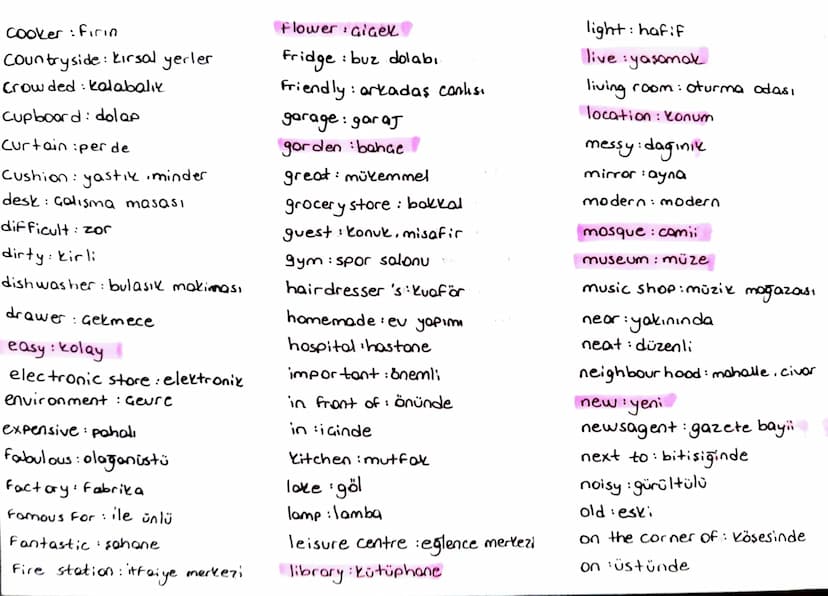 cooker : fırın
countryside : kırsal yerler
crowded : kalabalık
cupboard : dolap
curtain : perde
cushion : yastık , minder
desk : çalışma masası
difficult : zor
dirty : kirli
dishwasher : bulaşık makinası
drawer : çekmece
easy : kolay
electronic store : elektronik
environment : çevre
expensive : pahalı
fabulous : olağanüstü
factory : fabrika
famous for : ile ünlü
fantastic : şahane
fire station : itfaiye merkezi
flower : çiçek
fridge : buz dolabı
friendly : arkadaş canlısı
garage : garaj
garden : bahçe
great : mükemmel
grocery store : bakkal
guest : konuk , misafir
gym : spor salonu
hairdresser 's : kuaför
homemade : ev yapımı
hospital : hastane
important : önemli
in front of : önünde
in : içinde
kitchen : mutfak
lake : göl
lamp : lamba
leisure centre : eğlence merkezi
library : kütüphane
light : hafif
live : yaşamak
living room : oturma odası
location : konum
messy : dağınık
mirror : ayna
modern : modern
mosque : camii
museum : müze
music shop : müzik mağazası
near : yakınında
neat : düzenli
neighbourhood : mahalle , civar
new : yeni
newsagent : gazete bayii
next to : bitişiğinde
noisy : gürültülü
old : eski
on the corner of : köşesinde
on : üstünde